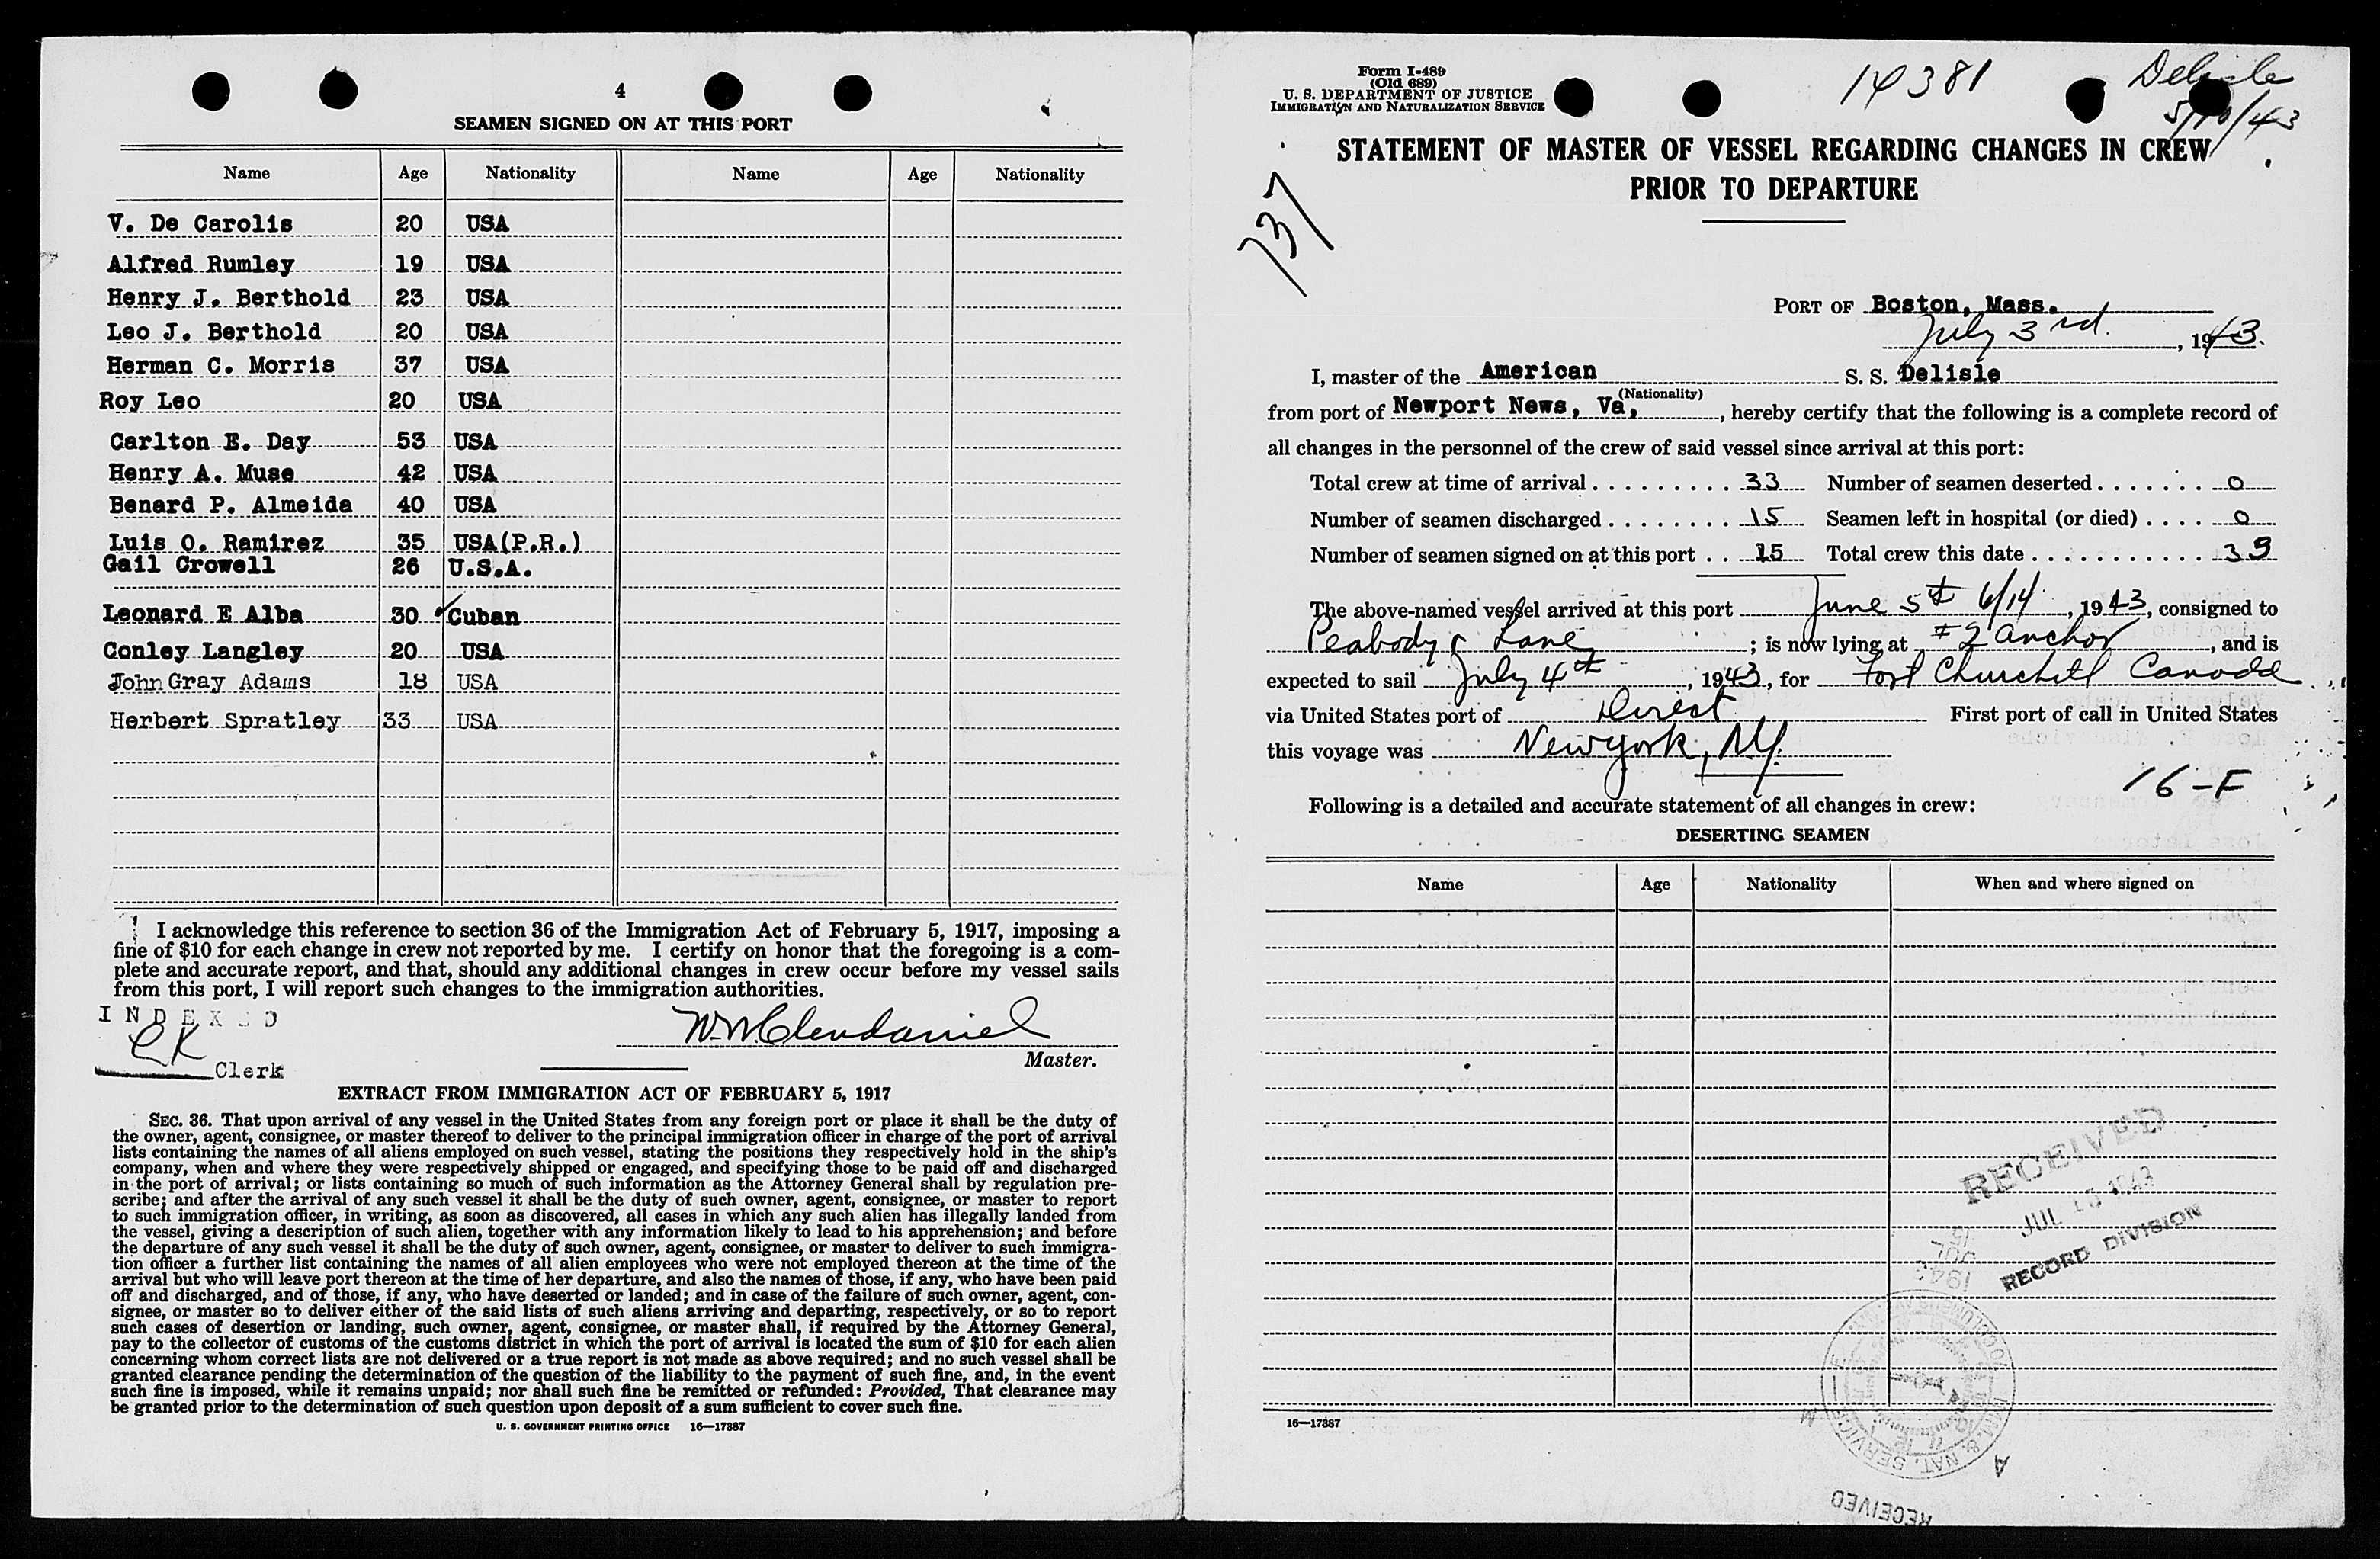 4
SEAMEN SIGNED ON AT THIS PORT
Name Age Nationality Name Age Nationality
V. De Carolis 20 USA
Alfred Rumley 19 USA
Henry J. Berthold 23 USA
Leo J. Berthold 20 USA
Herman C. Morris 37 USA
Roy Leo 20 USA
Carlton E. Day 53 USA
Henry A. Muse 42 USA
Benard P. Almeida 40 USA
Luis O. Ramirez 35 USA(P.R.)
Gail Crowell 26 U.S.A.
Leonard E Alba 30 Cuban
Conley Langley 20 USA
John Gray Adams 18 USA
Herbert Spratley 33 USA
I acknowledge this reference to section 36 of the Immigration Act of February 5, 1917, imposing a
fine of $10 for each change in crew not reported by me. I certify on honor that the foregoing is a com-
plete and accurate report, and that, should any additional changes in crew occur before my vessel sails
from this port, I will report such changes to the immigration authorities.
INDEXED
CK
Clerk
W. W. Clendaniel
Master.
EXTRACT FROM IMMIGRATION ACT OF FEBRUARY 5, 1917
SEC. 36. That upon arrival of any vessel in the United States from any foreign port or place it shall be the duty of
the owner, agent, consignee, or master thereof to deliver to the principal immigration officer in charge of the port of arrival
lists containing the names of all aliens employed on such vessel, stating the positions they respectively hold in the ship's
company, when and where they were respectively shipped or engaged, and specifying those to be paid off and discharged
in the port of arrival; or lists containing so much of such information as the Attorney General shall by regulation pre-
scribe; and after the arrival of any such vessel it shall be the duty of such owner, agent, consignee, or master to report
to such immigration officer, in writing, as soon as discovered, all cases in which any such alien has illegally landed from
the vessel, giving a description of such alien, together with any information likely to lead to his apprehension; and before
the departure of any such vessel it shall be the duty of such owner, agent, consignee, or master to deliver to such immigra-
tion officer a further list containing the names of all alien employees who were not employed thereon at the time of the
arrival but who will leave port thereon at the time of her departure, and also the names of those, if any, who have been paid
off and discharged, and of those, if any, who have deserted or landed; and in case of the failure of such owner, agent, con-
signee, or master so to deliver either of the said lists of such aliens arriving and departing, respectively, or so to report
such cases of desertion or landing, such owner, agent, consignee, or master shall, if required by the Attorney General,
pay to the collector of customs of the customs district in which the port of arrival is located the sum of $10 for each alien
concerning whom correct lists are not delivered or a true report is not made as above required; and no such vessel shall be
granted clearance pending the determination of the question of the liability to the payment of such fine, and, in the event
such fine is imposed, while it remains unpaid; nor shall such fine be remitted or refunded: Provided, That clearance may
be granted prior to the determination of such question upon deposit of a sum sufficient to cover such fine.
U. S. GOVERNMENT PRINTING OFFICE 16—17387
Form I-489
(Old 689)
U. S. DEPARTMENT OF JUSTICE
IMMIGRATION AND NATURALIZATION SERVICE
14381
Delisle
5/10/43
STATEMENT OF MASTER OF VESSEL REGARDING CHANGES IN CREW
PRIOR TO DEPARTURE
737
PORT OF Boston, Mass.
July 3rd. , 1943.
I, master of the American S. S. Delisle
(Nationality)
from port of Newport News, Va, , hereby certify that the following is a complete record of
all changes in the personnel of the crew of said vessel since arrival at this port:
Total crew at time of arrival . . . . . . . . . . 33 Number of seamen deserted . . . . . . . 0
Number of seamen discharged . . . . . . . . 15 Seamen left in hospital (or died) . . . . 0
Number of seamen signed on at this port . . 15 Total crew this date . . . . . . . . . . . . 39
The above-named vessel arrived at this port June 5th 6/14 , 1943, consigned to
Peabody & Lane ; is now lying at #2 anchor , and is
expected to sail July 4th , 1943, for Fort Churchill Canada
via United States port of Direct First port of call in United States
this voyage was New York, NY.
16-F
Following is a detailed and accurate statement of all changes in crew:
DESERTING SEAMEN
Name Age Nationality When and where signed on
RECEIVED
JUL 15 1943
RECORD DIVISION
JUL 15
1943
16—17387
RECEIVED